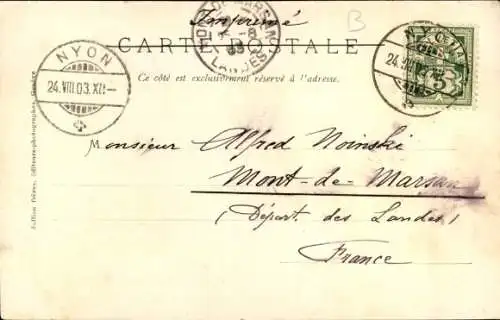 Imprimé
B
CARTE POSTALE
Ce côté est exclusivement réservé à l'adresse.
NYON
24.VIII.03.XII-
NYON
24.VIII.03
5
LANDES
Monsieur Alfred Noinski
Mont-de-Marsan
(Départ. des Landes)
France
Jullien frères, Editeurs-photographes, Genève